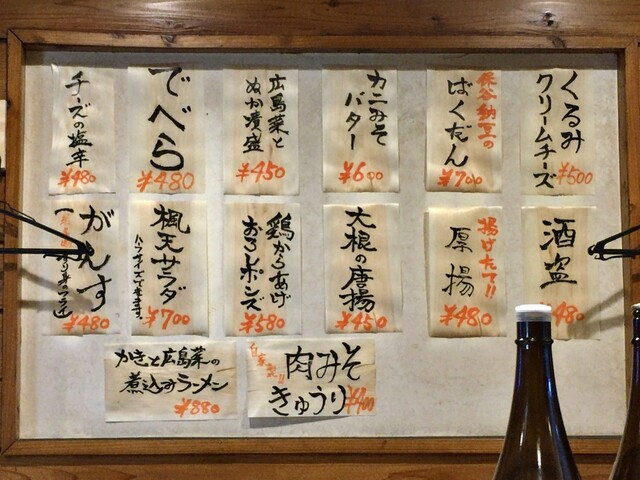 くるみ
クリームチーズ
¥500
保谷納豆の
ばくだん
¥700
カニみそ
バター
¥600
広島菜と
ぬか漬盛
¥450
でべら
¥480
チーズの塩辛
¥480
酒盗
¥480
揚げたて!!
厚揚
¥480
大根の唐揚
¥450
鶏からあげ
おろしポンズ
¥580
楓天サラダ
ハーフサイズできます。
¥700
がんす
¥480
かきと広島菜の
煮込みラーメン
¥880
自家製
肉みそ
きゅうり
¥400